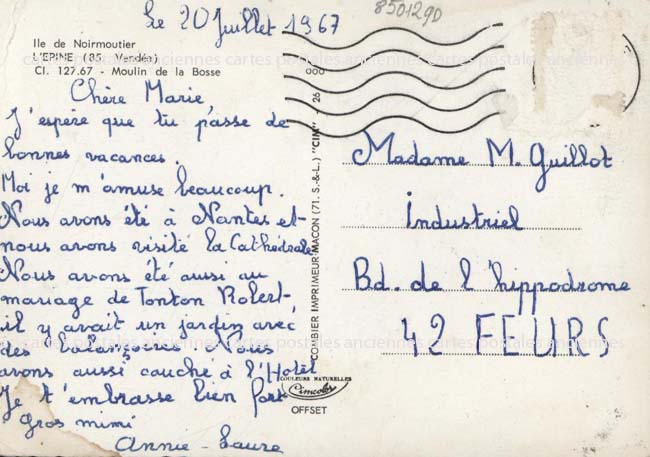 Le 20 Juillet 1967
850129D
Ile de Noirmoutier
L'EPINE (85. Vendée)
Cl. 127.67 - Moulin de la Bosse
Chère Marie
J'espère que tu passe de
bonnes vacances.
Moi je m'amuse beaucoup.
Nous avons été à Nantes et
nous avons visité la Cathédrale
Nous avons été aussi au
mariage de Tonton Robert
il y avait un jardin avec
des balançoires. Nous
avons aussi couché à l'Hotel
Je t'embrasse bien fort
gros mimi
Annie-Laure
COMBIER IMPRIMEUR MACON (71. S.-&-L.) "CIM"
26 000
COULEURS NATURELLES
Cimcolor
OFFSET
Madame M. Guillot
Industriel
Bd. de l'hippodrome
42 FEURS
cartes postales anciennes cartes postales anciennes cartes postales anciennes
cartes postales anciennes cartes postales anciennes cartes postales anciennes